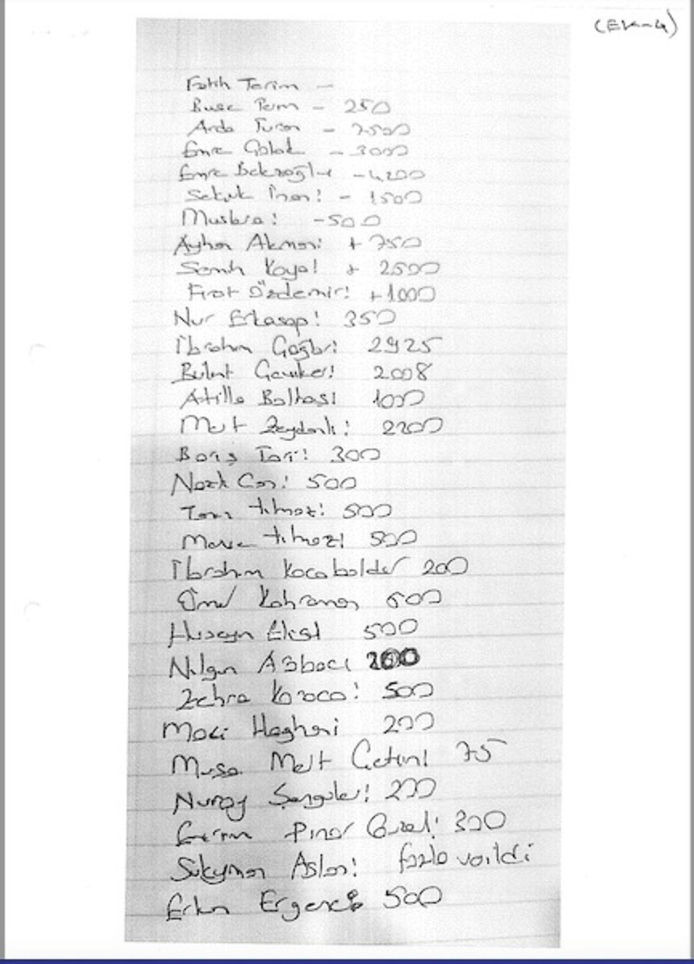 (Ek-4)
Fatih Terim -
Buse Terim - 250
Arda Turan - 7500
Emre Çolak - 3000
Emre Belezoğlu - 4200
Selçuk İnan! - 1500
Muslera! - 500
Ayhan Akman: + 750
Semih Kaya! + 2500
Fırat Özdemir! + 1000
Nur Erkasap! 350
İbrahim Çağlar! 2925
Bülent Çeviker! 2008
Atilla Baltaş! 1000
Mert Zeydanlı! 2200
Barış Tari! 300
Nazlı Can! 500
Yılmaz! 500
Merve Yılmaz! 500
İbrahim Kocabaldır 200
Ömer Kahraman 500
Hüseyin Eksi 500
Nilgün 200
Zehra Karaca! 500
Haghari 200
Musa Mert Çetin! 75
Nuray Şengüler! 200
Pınar Güzel! 300
Süleyman Aslan! fazla verildi
Erkan Ergen 500